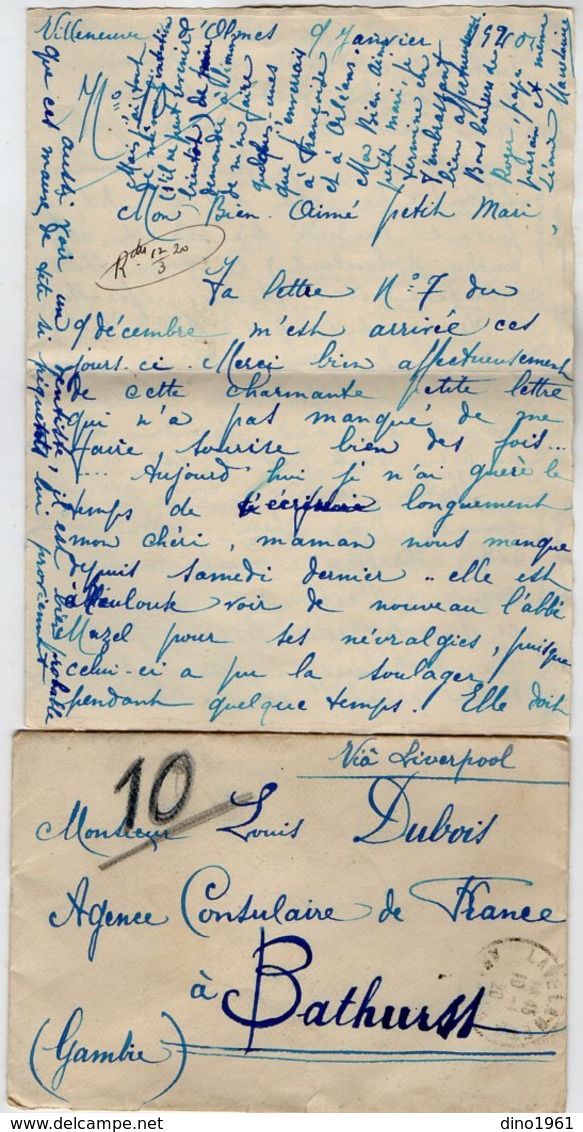 Villeneuve d'Olmes 9 Janvier 1920.
Mon Bien-Aimé petit Mari,
Rdu 12/3 20
Ta lettre N° 7 du
9 décembre m'est arrivée ces
jours-ci. Merci bien affectueusement
de cette charmante petite lettre
qui n'a pas manqué de me
faire sourire bien des fois...
.... Aujourd'hui je n'ai guère le
temps de t'écrire longuement
mon chéri, maman nous manque
depuis samedi dernier.. elle est
à Toulouse voir de nouveau l'abbé
Mazel pour ses névralgies, puisque
celui-ci a pu la soulager
pendant quelque temps. Elle doit
aussi voir un dentiste, il est bien probable
que ces maux de tête si fréquents lui proviennent
Mais j'ai tout
de
(s'il ne peut
demander à
de m'en faire
quelques-unes
que j'enverrais
à Françoise
et à Orléans.
Mon Bien-Aimé
petit mari, je
termine en
t'embrassant
bien affectueusement.
Bons baisers de
Roger, papa
parrain et même
Viâ Liverpool
10
Monsieur Louis Dubois
Agence Consulaire de France
à Bathurst
(Gambie)
LAVELANET
10-1
20
dino1961